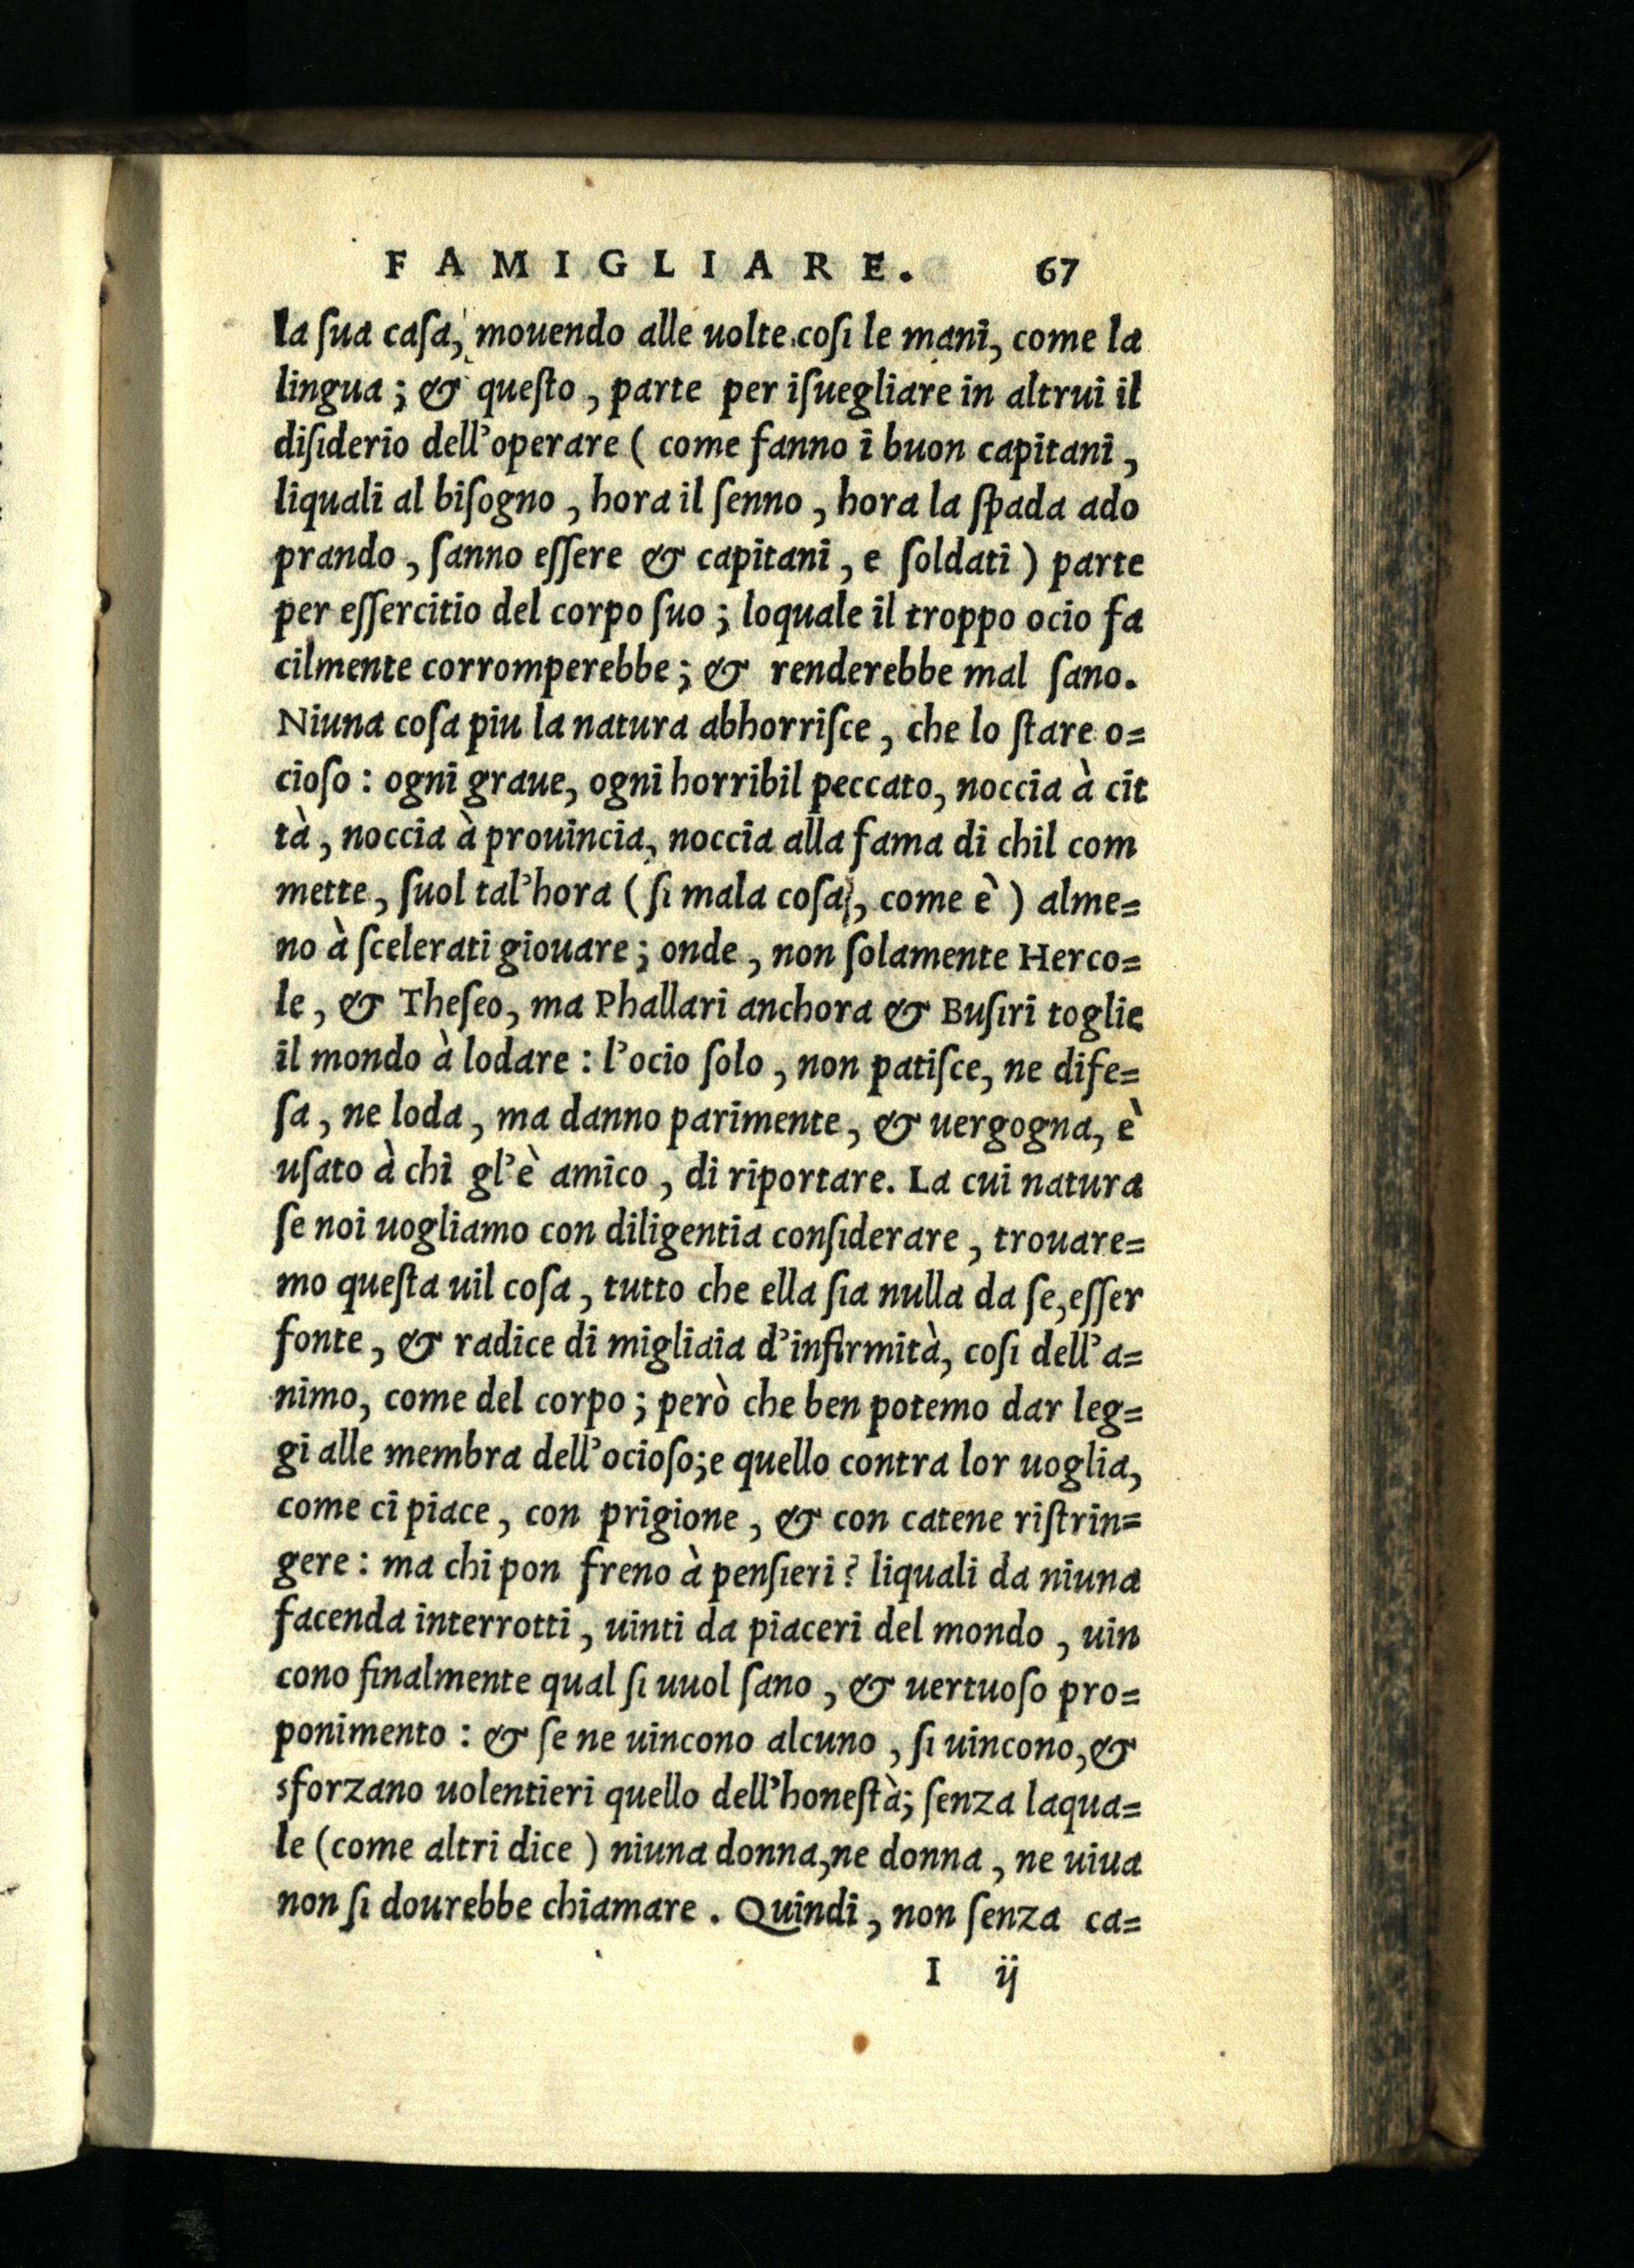 FAMIGLIARE. 67
la ſua caſa, mouendo alle uolte coſi le mani, come la
lingua; & queſto, parte per iſuegliare in altrui il
diſiderio dell'operare ( come fanno i buon capitani,
liquali al biſogno, hora il ſenno, hora la ſpada ado
prando, ſanno eſſere & capitani, e ſoldati) parte
per eſſercitio del corpo ſuo; loquale il troppo ocio fa
cilmente corromperebbe; & renderebbe mal ſano.
Niuna coſa piu la natura abhorriſce, che lo ſtare o=
cioſo: ogni graue, ogni horribil peccato, noccia à cit
tà, noccia à prouincia, noccia alla fama di chil com
mette, ſuol tal'hora (ſi mala coſa, come è) alme=
no à ſcelerati giouare; onde, non ſolamente Herco=
le, & Theſeo, ma Phallari anchora & Buſiri toglie
il mondo à lodare: l'ocio ſolo, non patiſce, ne dife=
ſa, ne loda, ma danno parimente, & uergogna, è
uſato à chi gl'è amico, di riportare. La cui natura
ſe noi uogliamo con diligentia conſiderare, trouare=
mo queſta uil coſa, tutto che ella ſia nulla da ſe, eſſer
fonte, & radice di migliaia d'infirmità, coſi dell'a=
nimo, come del corpo; però che ben potemo dar leg=
gi alle membra dell'ocioſo; e quello contra lor uoglia,
come ci piace, con prigione, & con catene riſtrin=
gere: ma chi pon freno à penſieri? liquali da niuna
facenda interrotti, uinti da piaceri del mondo, uin
cono finalmente qual ſi uuol ſano, & uertuoſo pro=
ponimento: & ſe ne uincono alcuno, ſi uincono, &
sforzano uolentieri quello dell'honeſtà; ſenza laqua=
le (come altri dice) niuna donna, ne donna, ne uiua
non ſi dourebbe chiamare. Quindi, non ſenza ca=
I ij